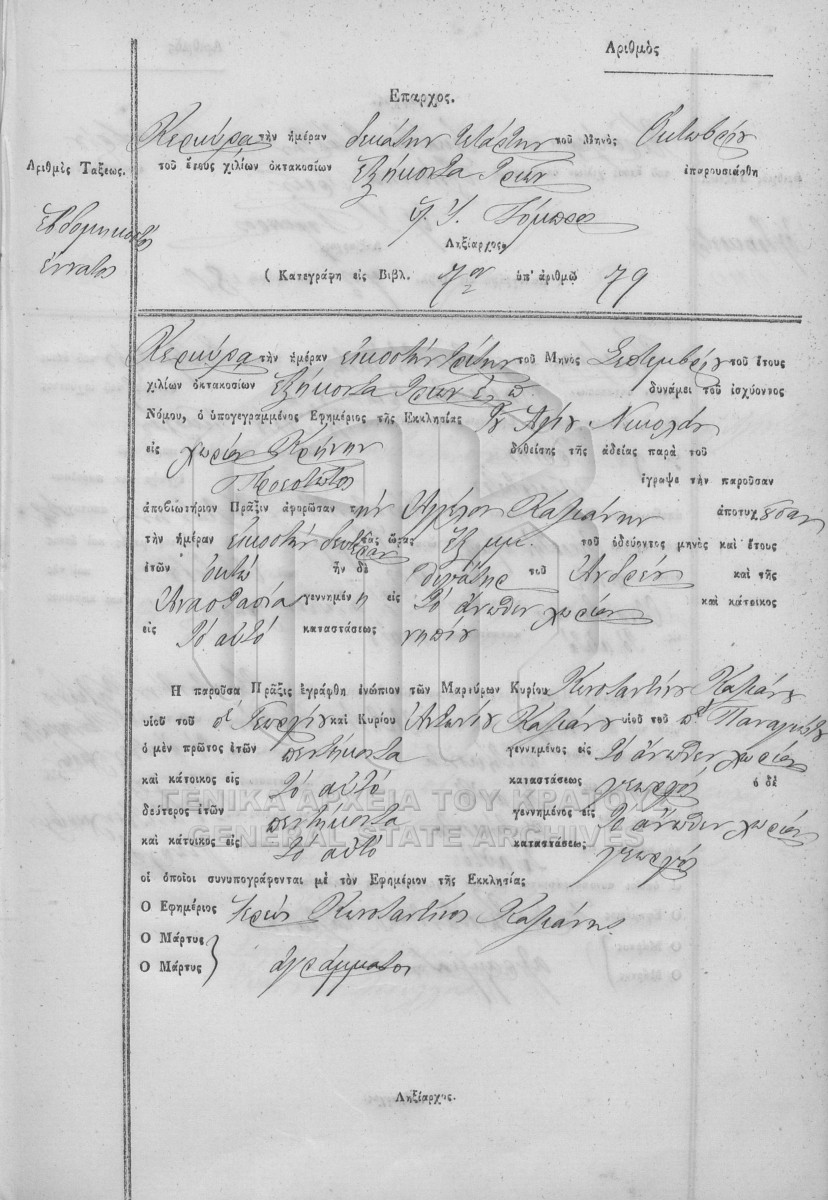 Αριθμὸς
Επαρχος.
Κερκύρα τὴν ἡμέραν δεκάτην τετάρτην τοῦ Μηνὸς Ὀκτωβρίου
Αριθμὸς Ταξεως. τοῦ ἔτους χιλίων ὀκτακοσίων ἑξήκοντα τριῶν ἐπαρουσιάσθη
Ἑβδομηκοστὸς
ἔννατος
Ληξίαρχος
( Κατεγράφη εἰς Βιβλ. 7ον ὑπ' ἀριθμῷ 79
Κερκύρα τὴν ἡμέραν εἰκοστὴν τρίτην τοῦ Μηνὸς Σεπτεμβρίου τοῦ ἔτους
χιλίων ὀκτακοσίων ἑξήκοντα τριῶν ἐ. π. δυνάμει τοῦ ἰσχύοντος
Νόμου, ὁ ὑπογεγραμμένος Εφημέριος τῆς Εκκλησίας τοῦ Ἁγίου Νικολάου
εἰς χωρίον Κρήνην δοθείσης τῆς ἀδείας παρὰ τοῦ
Προεστῶτος ἔγραψε τὴν παροῦσαν
ἀποβιωτήριον Πρᾶξιν ἀφορῶσαν τὴν Ἀγγέλω Καλιάνην ἀποτυχοῦσαν
τὴν ἡμέραν εἰκοστὴν δευτέραν τὰς ὥρας ἓξ μμ. τοῦ ὁδεύοντος μηνὸς καὶ ἔτους
ἐτῶν ὀκτὼ ἦν δὲ θυγάτηρ τοῦ Ἀνδρέου καὶ τῆς
Ἀναστασία γεννημένη εἰς τὸ ἄνωθεν χωρίον καὶ κάτοικος
εἰς τὸ αὐτό καταστάσεως νηπίου
Η παροῦσα Πρᾶξις ἐγράφθη ἐνώπιον τῶν Μαρτύρων Κυρίου Κωνσταντίνου Καλιάνη
υἱοῦ τοῦ ποτὲ Γεωργίου καὶ Κυρίου Ἀντωνίου Καλιάνη υἱοῦ τοῦ ποτὲ Παναγιώτου
ὁ μὲν πρῶτος ἐτῶν πεντήκοντα γεννημένος εἰς τὸ ἄνωθεν χωρίον
καὶ κάτοικος εἰς τὸ αὐτό καταστάσεως γεωργός, ὁ δὲ
δεύτερος ἐτῶν πεντήκοντα γεννημένος εἰς τὸ ἄνωθεν χωρίον
καὶ κάτοικος εἰς τὸ αὐτό καταστάσεως γεωργός
οἱ ὁποῖοι συνυπογράφονται μὲ τὸν Εφημέριον τῆς Εκκλησίας
Ο Εφημέριος Ἱερεὺς Κωνσταντῖνος Καλιάνης
Ο Μάρτυς
Ο Μάρτυς } ἀγράμματοι
Ληξίαρχος.
ΓΕΝΙΚΑ ΑΡΧΕΙΑ ΤΟΥ ΚΡΑΤΟΥΣ
GENERAL STATE ARCHIVES